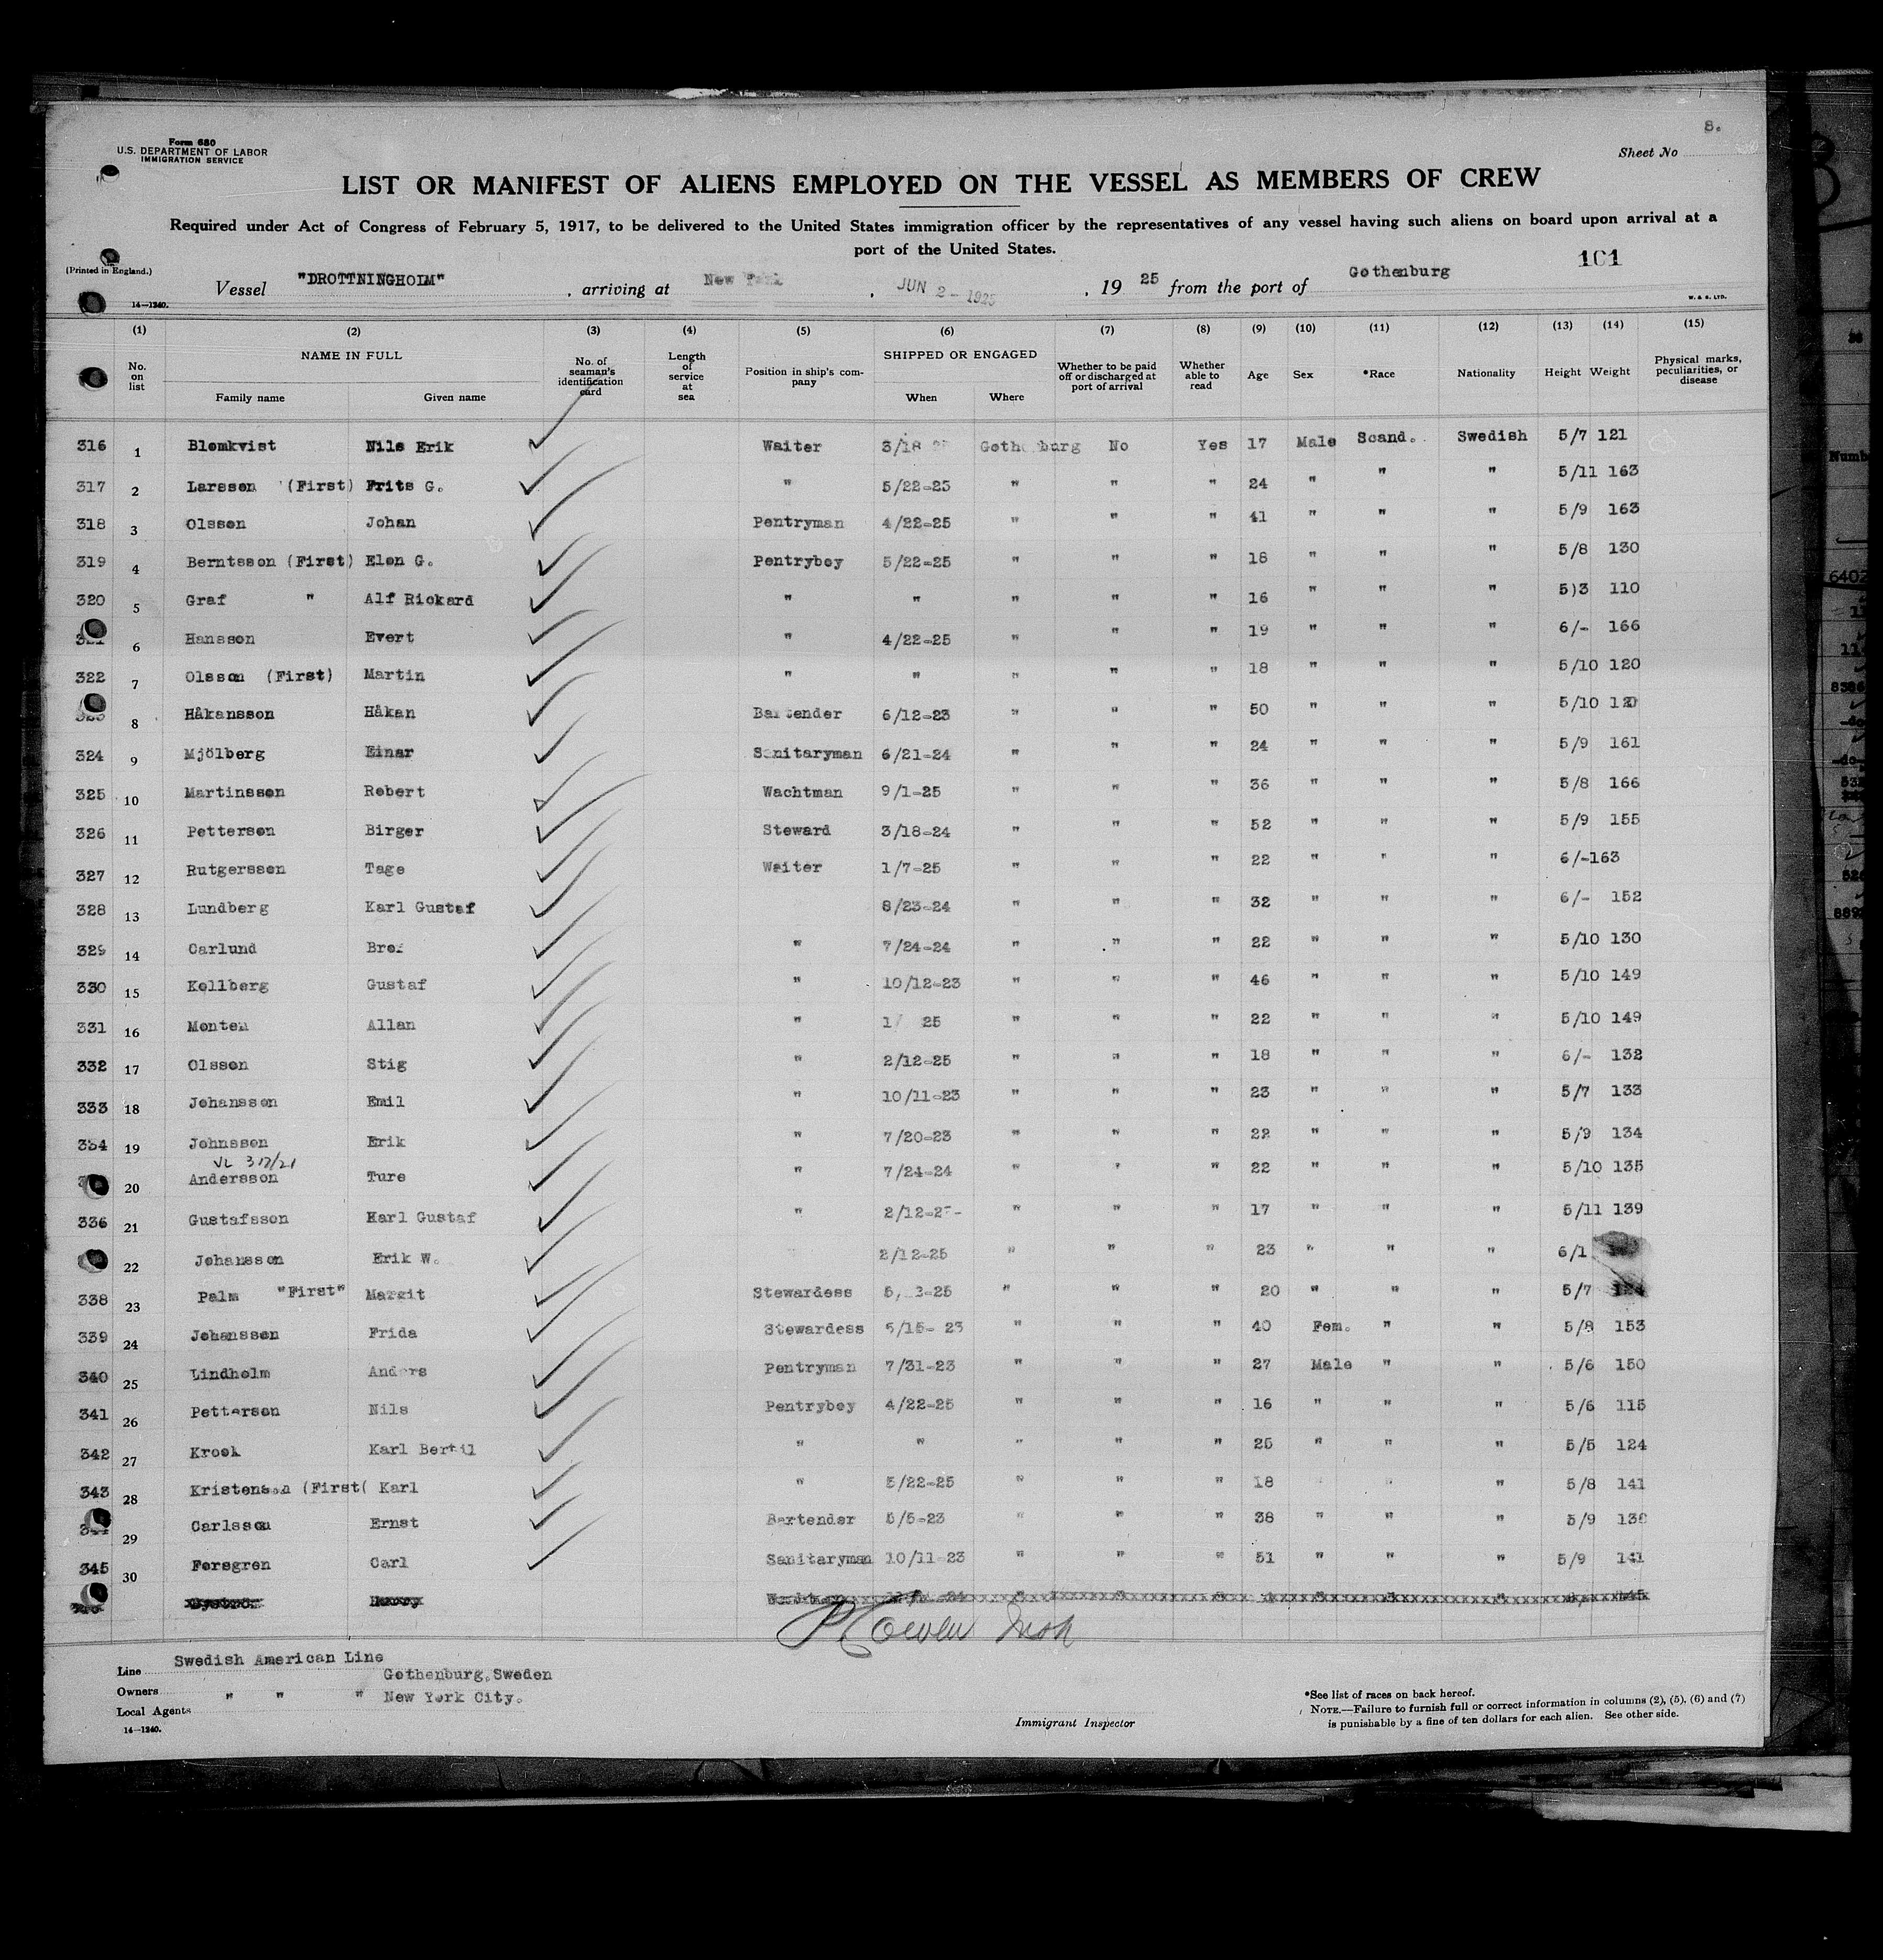 8.
Form 680
U.S. DEPARTMENT OF LABOR
IMMIGRATION SERVICE
Sheet No
LIST OR MANIFEST OF ALIENS EMPLOYED ON THE VESSEL AS MEMBERS OF CREW
Required under Act of Congress of February 5, 1917, to be delivered to the United States immigration officer by the representatives of any vessel having such aliens on board upon arrival at a
port of the United States.
101
(Printed in England.)
Vessel "DROTTNINGHOLM", arriving at New York, JUN 2 - 1925, 1925 from the port of Gothenburg
14—1240. W. & S. LTD.
(1) (2) (3) (4) (5) (6) (7) (8) (9) (10) (11) (12) (13) (14) (15)
No. on list NAME IN FULL Family name Given name No. of seaman's identification card Length of service at sea Position in ship's company SHIPPED OR ENGAGED When Where Whether to be paid off or discharged at port of arrival Whether able to read Age Sex *Race Nationality Height Weight Physical marks, peculiarities, or disease
316 1 Blomkvist Nils Erik Waiter 3/18 Gothenburg No Yes 17 Male Scand. Swedish 5/7 121
317 2 Larsson (First) Frits G. " 5/22-25 " " " 24 " " " 5/11 163
318 3 Olsson Johan Pentryman 4/22-25 " " " 41 " " " 5/9 163
319 4 Berntsson (First) Elon G. Pentryboy 5/22-25 " " " 18 " " " 5/8 130
320 5 Graf " Alf Rickard " " " " " 16 " " " 5)3 110
321 6 Hansson Evert " 4/22-25 " " " 19 " " " 6/- 166
322 7 Olsson (First) Martin " " " " " 18 " " " 5/10 120
323 8 Håkansson Håkan Bartender 6/12-23 " " " 50 " " " 5/10 120
324 9 Mjölberg Einar Sanitaryman 6/21-24 " " " 24 " " " 5/9 161
325 10 Martinsson Robert Wachtman 9/1-25 " " " 36 " " " 5/8 166
326 11 Petterson Birger Steward 3/18-24 " " " 52 " " " 5/9 155
327 12 Rutgersson Tage Waiter 1/7-25 " " " 22 " " " 6/-163
328 13 Lundberg Karl Gustaf 8/23-24 " " " 32 " " " 6/- 152
329 14 Carlund " 7/24-24 " " " 22 " " " 5/10 130
330 15 Kollberg Gustaf " 10/12-23 " " " 46 " " " 5/10 149
331 16 Monten Allan " 1/ 25 " " " 22 " " " 5/10 149
332 17 Olsson Stig " 2/12-25 " " " 18 " " " 6/- 132
333 18 Johansson Emil " 10/11-23 " " " 23 " " " 5/7 133
334 19 Johnsson Erik " 7/20-23 " " " 22 " " " 5/9 134
20 Andersson Ture " 7/24-24 " " " 22 " " " 5/10 135
336 21 Gustafsson Karl Gustaf " 2/12-2 " " " 17 " " " 5/11 139
22 Johansson Erik W. 2/12-25 " " " 23 " " " 6/1
338 23 Palm "First" Margit Stewardess " " " 20 " " " 5/7
339 24 Johansson Frida Stewardess 5/15- 23 " " " 40 Fem. " " 5/8 153
340 25 Lindholm Anders Pentryman 7/31-23 " " " 27 Male " " 5/6 150
341 26 Petterson Nils Pentryboy 4/22-25 " " " 16 " " " 5/6 115
342 27 Krook Karl Bertil " " " " " 25 " " " 5/5 124
343 28 Kristenson (First( Karl " 5/22-25 " " " 18 " " " 5/8 141
344 29 Carlsson Ernst Bartender 5/5-23 " " " 38 " " " 5/9
345 30 Forsgren Carl Sanitaryman 10/11-23 " " " 51 " " " 5/9 141
Line Swedish American Line
Owners Gothenburg, Sweden
Local Agents " " " New York City.
14—1240.
Immigrant Inspector
*See list of races on back hereof.
NOTE.—Failure to furnish full or correct information in columns (2), (5), (6) and (7)
is punishable by a fine of ten dollars for each alien. See other side.